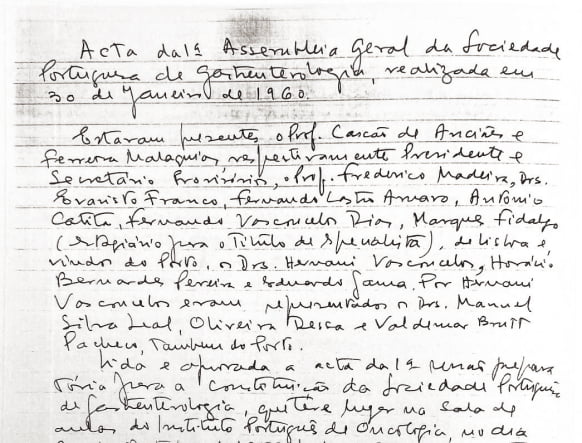 Acta da 1ª Assembleia Geral da Sociedade
Portuguesa de Gastrenterologia, realizada em
30 de Janeiro de 1960.
Estavam presentes o Prof. Cascão de Anciães e
Ferreira Malaquias respectivamente Presidente e
Secretário Provisórios, o Prof. Frederico Madeira, Drs.
Evaristo Franco, Fernando Castro Amaro, António
Catita, Fernando Vasconcelos Dias, Marques Fidalgo
(estagiário para o Titulo de Specialista), de Lisboa e
vindos do Porto, os Drs. Hernani Vasconcelos, Horácio
Bernardes Pereira e Eduardo Gama. Por Hernani
Vasconcelos eram representados os Drs. Manuel
Silva Leal, Oliveira Dessa e Valdemar
Pacheco, Tambem do Porto.
Lida e aprovada a acta da 1ª prepara
tória para a Constituição da Sociedade Portuguesa
de Gastrenterologia, que teve lugar na sala de
aulas do Instituto Português de Oncologia, no dia